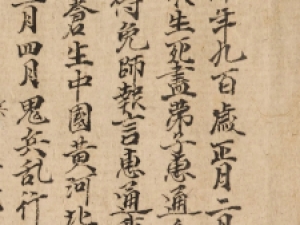 年九百歲正月二月
生死盡弟子惠通
得免師報言惠通
蒼生中國黃河北
二月四月鬼兵乱行